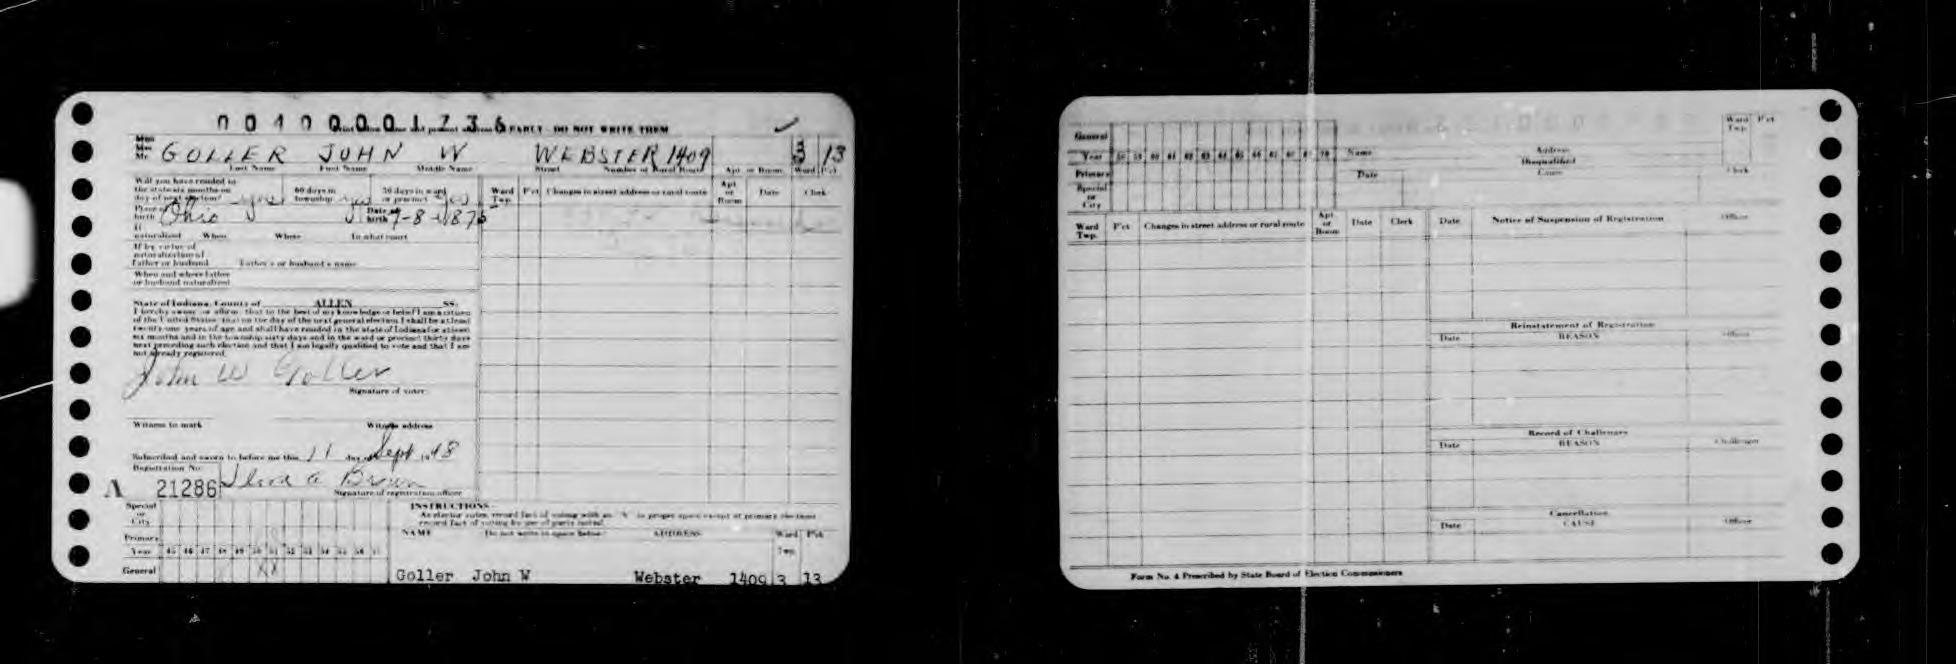 00400001736
EARLY - DO NOT WRITE THEM
Miss
Mrs
Mr. GOLLER JOHN W WEBSTER 1409 3 13
Last Name First Name Middle Name Street Number or Rural Route Apt. or Room Ward Pct
Will you have resided in
the state six months on
day of next election? yes 60 days in
township yes 30 days in ward
or precinct yes
Place of
birth Ohio Date of
birth 7-8-1876
If
naturalized When Where In what court
If by virtue of
naturalization of
Father or husband Father's or husband's name
When and where father
or husband naturalized
State of Indiana, County of ALLEN SS.
I hereby swear or affirm, that to the best of my knowledge or belief I am a citizen
of the United States, that on the day of the next general election I shall be at least
twenty-one years of age and shall have resided in the state of Indiana for at least
six months and in the township sixty days and in the ward or precinct thirty days
next preceding such election and that I am legally qualified to vote and that I am
not already registered.
John W Goller
Signature of voter
Witness to mark Witness address
Subscribed and sworn to before me this 11 day of Sept 1948
Registration No.
A 21286
Signature of registration officer
Ward
Twp. P'ct Changes in street address or rural route Apt
or
Room Date Clerk
Special
or
City
Primary
Year 45 46 47 48 49 50 51 52 53 54 55 56 57
General XX
INSTRUCTIONS
As elector votes, record fact of voting with an "X" in proper space except at primary elections
record fact of voting by use of party initial.
NAME Do not write in space below ADDRESS Ward
Twp. P'ct
Goller John W Webster 1409 3 13
General
Year 58 59 60 61 62 63 64 65 66 67 68 69 70
Primary
Special
or
City
Name Address Ward
Twp. P'ct
Disqualified
Date Cause Clerk
Ward
Twp. P'ct Changes in street address or rural route Apt
or
Room Date Clerk
Date Notice of Suspension of Registration Officer
Reinstatement of Registration
Date REASON Officer
Record of Challenges
Date REASON Challenger
Cancellation
Date CAUSE Officer
Form No. 4 Prescribed by State Board of Election Commissioners